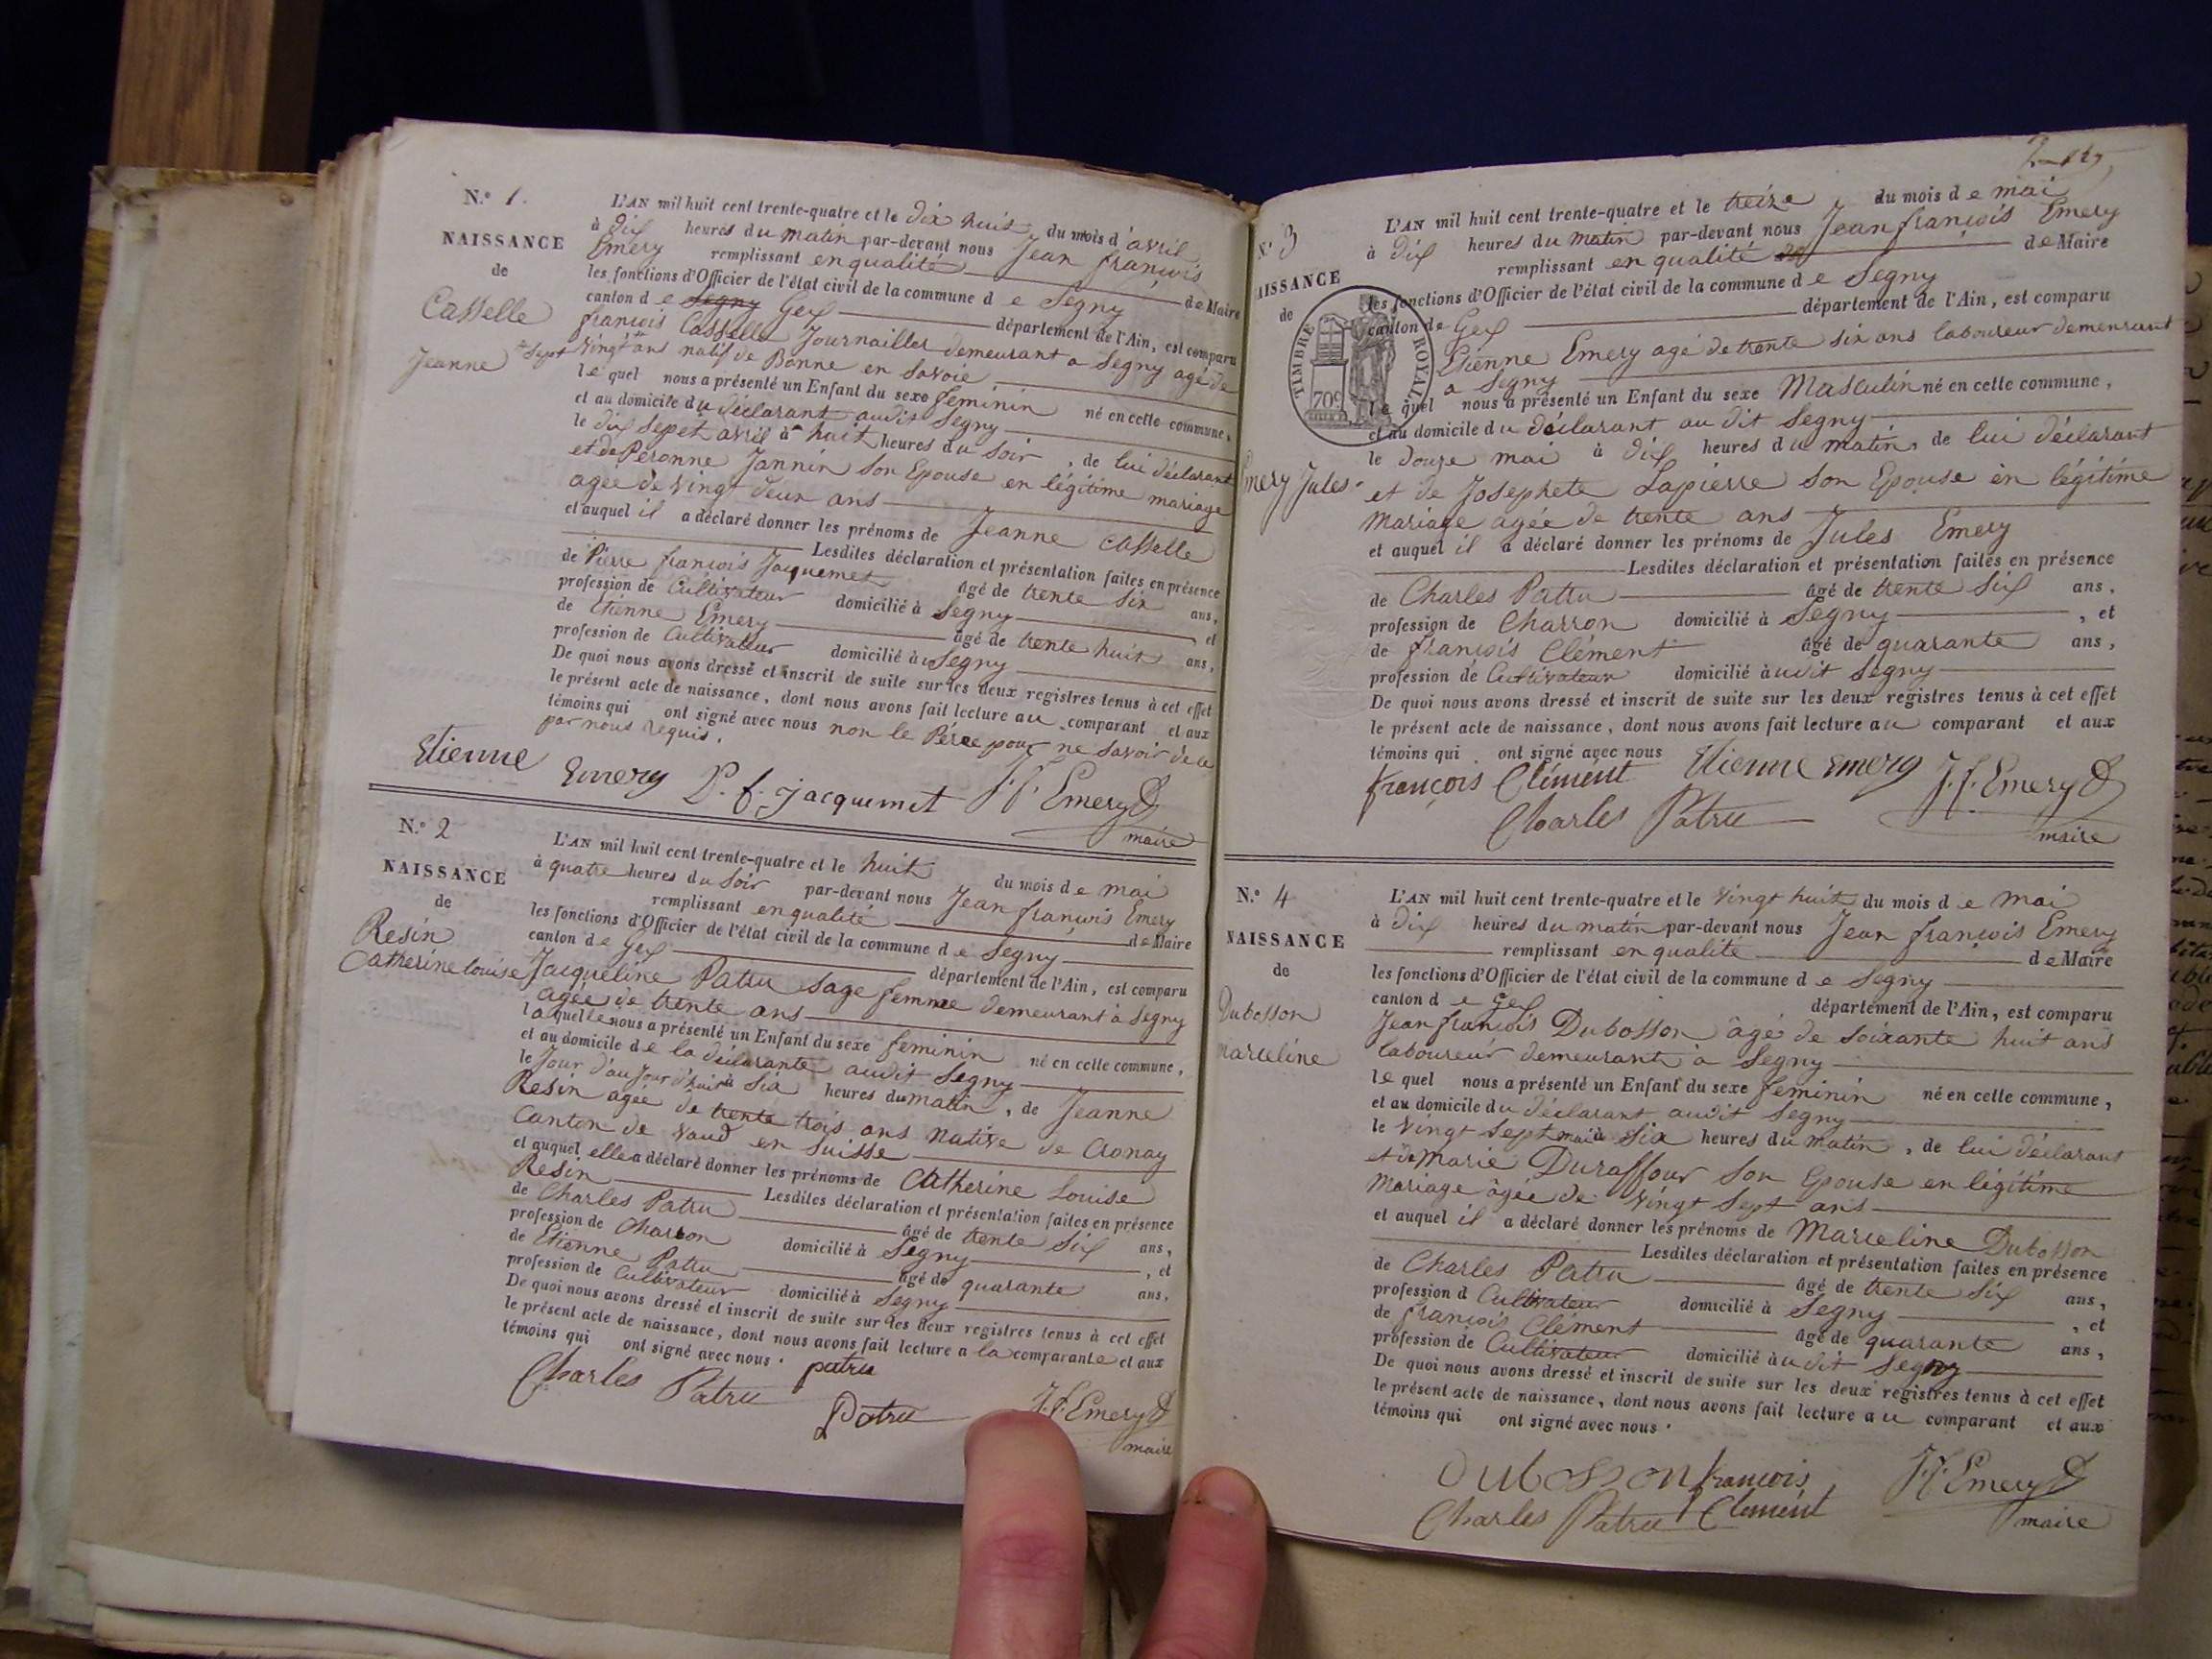 N.º 1.
NAISSANCE
de
Casselle
Jeanne
L'AN mil huit cent trente-quatre et le dix huit du mois d'avril
à dix heures du matin par-devant nous Jean françois
Emery remplissant en qualité de Maire
les fonctions d'Officier de l'état civil de la commune de Segny
canton de Segny Gex département de l'Ain, est comparu
françois Casselle Journaillier demeurant a Segny agé de
vingt sept ans natif de Bonne en Savoie
le quel nous a présenté un Enfant du sexe feminin né en cette commune,
et au domicile du déclarant audit Segny
le dix sepet avril à huit heures du soir, de lui déclarant
et de Peronne Jannin son Epouse en légitime mariage
agée de vingt deux ans
et auquel il a déclaré donner les prénoms de Jeanne Casselle
Lesdites déclaration et présentation faites en présence
de Pierre françois Jacquemet âgé de trente six ans,
profession de Cultivateur domicilié à Segny, et
de Etienne Emery âgé de trente huit ans,
profession de Cultivateur domicilié à Segny
De quoi nous avons dressé et inscrit de suite sur les deux registres tenus à cet effet
le présent acte de naissance, dont nous avons fait lecture au comparant et aux
témoins qui ont signé avec nous non le Pére pour ne savoir de ce
par nous requis.
Etienne Emery P. f. jacquemet J. f. Emery
maire
N.º 2
NAISSANCE
de
Resin
Catherine Louise
L'AN mil huit cent trente-quatre et le huit du mois de mai
à quatre heures du soir par-devant nous Jean françois Emery
remplissant en qualité de Maire
les fonctions d'Officier de l'état civil de la commune de Segny
canton de Gex département de l'Ain, est comparu
Jacqueline Patru sage femme demeurant à Segny
agée de trente ans
laquelle nous a présenté un Enfant du sexe feminin né en cette commune,
et au domicile de la déclarante audit Segny
le Jour d'aujourd'huit à six heures du matin, de Jeanne
Resin agée de trente trois ans native de Cronay
Canton de Vaud en Suisse
et auquel elle a déclaré donner les prénoms de Catherine Louise
Resin Lesdites déclaration et présentation faites en présence
de Charles Patru âgé de trente six ans,
profession de Charron domicilié à Segny, et
de Etienne Patru âgé de quarante ans,
profession de Cultivateur domicilié à Segny
De quoi nous avons dressé et inscrit de suite sur les deux registres tenus à cet effet
le présent acte de naissance, dont nous avons fait lecture a la comparante et aux
témoins qui ont signé avec nous. patru
Charles Patru Patru J. f. Emery
maire
N.º 3
AISSANCE
de
mery Jules
TIMBRE ROYAL
70c
L'AN mil huit cent trente-quatre et le treize du mois de mai
à dix heures du matin par-devant nous Jean françois Emery
remplissant en qualité de Maire
les fonctions d'Officier de l'état civil de la commune de Segny
canton de Gex département de l'Ain, est comparu
Etienne Emery agé de trente six ans laboureur demeurant
a Segny
le quel nous a présenté un Enfant du sexe Masculin né en cette commune,
et au domicile du déclarant au dit Segny
le douze mai à dix heures du matin, de lui déclarant
et de Josephete Lapierre son Epouse en légitime
mariage agée de trente ans
et auquel il a déclaré donner les prénoms de Jules Emery
Lesdites déclaration et présentation faites en présence
de Charles Patru âgé de trente six ans,
profession de Charron domicilié à Segny, et
de françois Clément âgé de quarante ans,
profession de Cultivateur domicilié audit Segny
De quoi nous avons dressé et inscrit de suite sur les deux registres tenus à cet effet
le présent acte de naissance, dont nous avons fait lecture au comparant et aux
témoins qui ont signé avec nous
françois Clément Etienne emery J. f. Emery
Charles Patru maire
N.º 4
NAISSANCE
de
Dubosson
marceline
L'AN mil huit cent trente-quatre et le vingt huit du mois de mai
à dix heures du matin par-devant nous Jean françois Emery
remplissant en qualité de Maire
les fonctions d'Officier de l'état civil de la commune de Segny
canton de Gex département de l'Ain, est comparu
Jean françois Dubosson âgé de soixante huit ans
laboureur demeurant à Segny
le quel nous a présenté un Enfant du sexe feminin né en cette commune,
et au domicile du déclarant audit Segny
le vingt sept mai à six heures du matin, de lui déclarant
et de Marie Duraffour son Epouse en légitime
Mariage âgée de vingt sept ans
et auquel il a déclaré donner les prénoms de Marceline Dubosson
Lesdites déclaration et présentation faites en présence
de Charles Patru âgé de trente six ans,
profession d Cultivateur domicilié à Segny, et
de françois Clément âgé de quarante ans,
profession de Cultivateur domicilié audit Segny
De quoi nous avons dressé et inscrit de suite sur les deux registres tenus à cet effet
le présent acte de naissance, dont nous avons fait lecture au comparant et aux
témoins qui ont signé avec nous.
Dubosson françois J. f. Emery
Charles Patru Clement maire